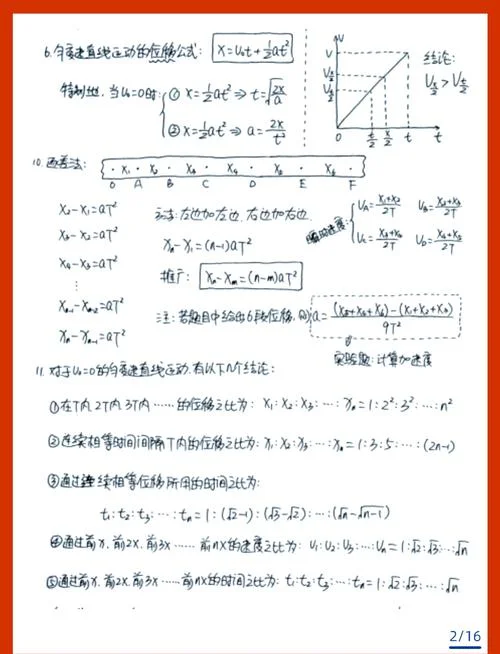 6. 匀变速直线运动的位移公式: x=v₀t+½at²
特别地, 当v₀=0时: ① x=½at² ⇒ t=√(2x/a)
② x=½at² ⇒ a=2x/t²
v
v
v_{x/2}
v_{t/2}
0
t/2
x/2
t
t
结论:
v_{x/2} > v_{t/2}
10. 逐差法:
x₁ x₂ x₃ x₄ x₅ x₆
O A B C D E F
x₂-x₁=aT²
x₃-x₂=aT²
x₄-x₃=aT²
⋮
x_{n-1}-x_{n-2}=aT²
x_n-x_{n-1}=aT²
方法: 左边加左边, 右边加右边.
x_n-x₁=(n-1)aT²
推广: x_n-x_m=(n-m)aT²
瞬时速度:
v_A=(x₁+x₂)/2T v_B=(x₂+x₃)/2T
v_C=(x₃+x₄)/2T v_D=(x₄+x₅)/2T
注: 若题目中给出6段位移, 则a=((x₄+x₅+x₆)-(x₁+x₂+x₃))/9T²
实验题: 计算加速度
11. 对于v₀=0的匀变速直线运动, 有以下几个结论:
①在T内, 2T内, 3T内……的位移之比为: x₁:x₂:x₃:⋯:x_n=1:2²:3²:⋯:n²
②连续相等时间间隔T内的位移之比为: x₁:x₂:x₃:⋯:x_n=1:3:5:⋯:(2n-1)
③通过连续相等位移所用的时间之比为:
t₁:t₂:t₃:⋯:t_n=1:(√2-1):(√3-√2):⋯:(√n-√(n-1))
④通过前x, 前2x, 前3x……前nx的速度之比为: v₁:v₂:v₃:⋯:v_n=1:√2:√3:⋯:√n
⑤通过前x, 前2x, 前3x……前nx的时间之比为: t₁:t₂:t₃:⋯:t_n=1:√2:√3:⋯:√n
2/16